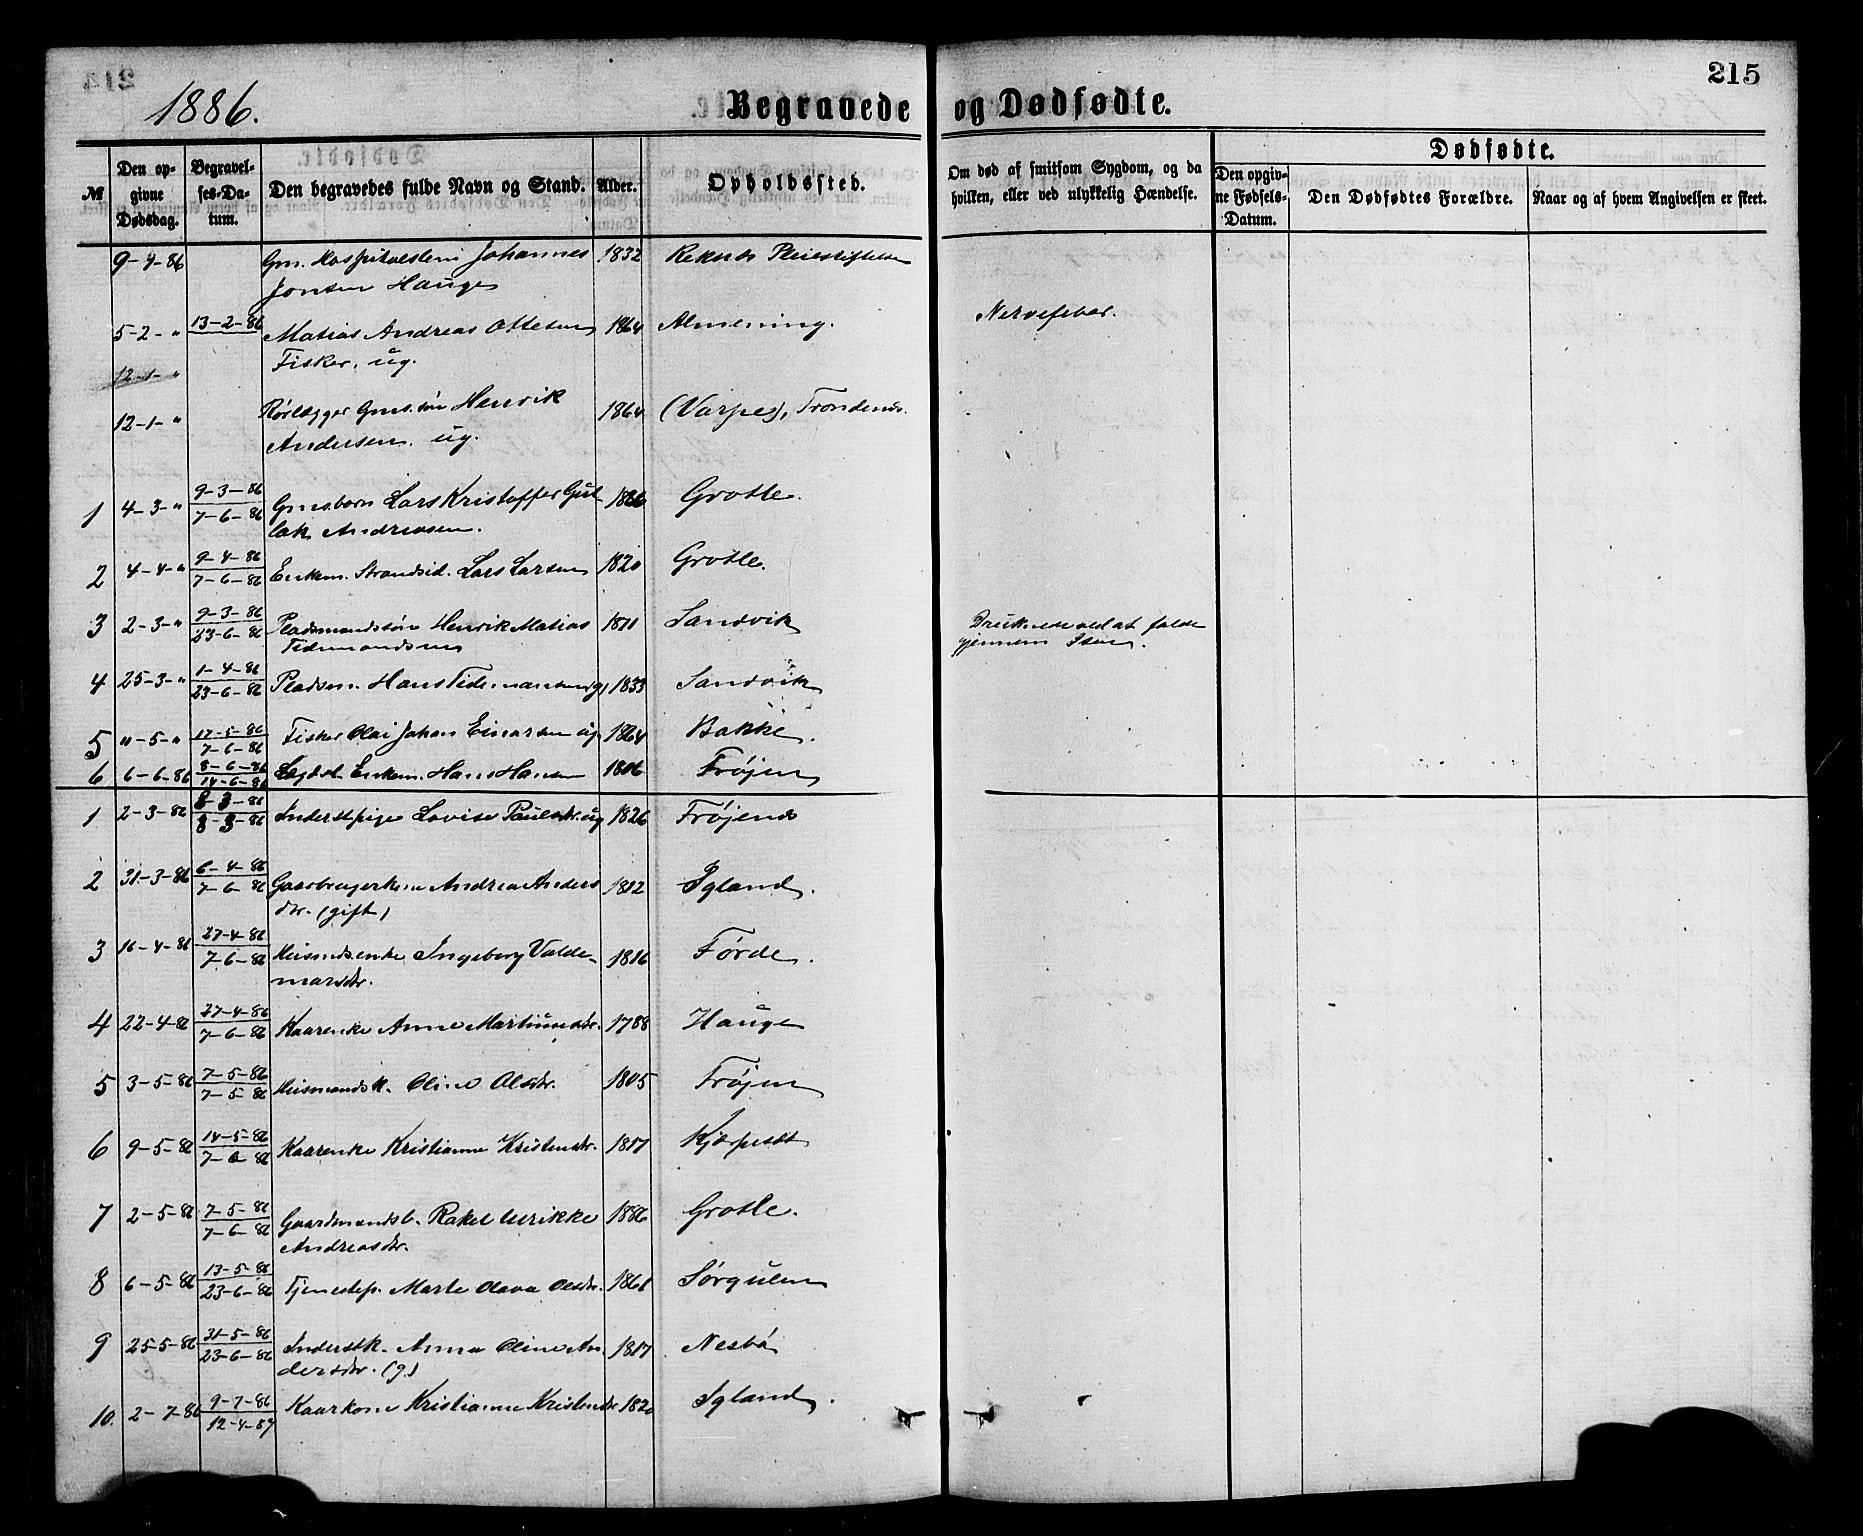 215
1886. Begravede og Dødfødte.
№ Den opgivne Dødsdag. Begravelses-Datum. Den begravedes fulde Navn og Stand. Alder. Opholdssted. Om død af smitsom Sygdom, og da hvilken, eller ved ulykkelig Hændelse. Dødfødte.
Den opgivne Fødsels-Datum. Den Dødfødtes Forældre. Naar og af hvem Angivelsen er skeet.
9-4-86 Gm. Hospitalslem Johannes 1832 Reknes Pleiestiftelse
Jonsen Hauge
5-2-" 13-2-86 Matias Andreas Ottesen 1864 Almening. Nervefeber.
Fisker, ug.
12-1-"
12-1-" Rørlægger Gms.søn Henrik 1864 (Varpe), Trondenes.
Andersen. ug.
1 4-3-" 9-3-86 7-6-86 Gmsbarn Lars Kristoffer Gut- 1886 Grotle.
lak Andreasen.
2 4-4-" 9-4-86 7-6-86 Enkem. Strandsid. Lars Larsen 1820 Grotle.
3 2-3-" 9-3-86 23-6-86 Pladsmandssøn Henrik Matias 1871 Sandvik Druknede ved at falde
Tidemandsen gjennem Isen.
4 25-3-" 1-4-86 23-6-86 Pladsm. Hans Tidemansen g, 1833 Sandvik
5 "-5-" 17-5-86 7-6-86 Fisker Olai Johan Einarsen ug 1864 Bakke.
6 6-6-86 8-6-86 14-6-86 Lægdsl. Enkem. Hans Hansen 1806 Frøjen
1 2-3-86 8-3-86 8-3-86 Inderstpige Lovise Paulsdtr. ug 1826 Frøjen
2 31-3-86 6-4-86 7-6-86 Gaarbrugerkone Andrea Anders 1812 Igland.
dtr. (gift)
3 16-4-86 27-4-86 7-6-86 Husmdsenke Ingeborg Valde- 1816 Førde.
marsdtr.
4 22-4-86 27-4-86 7-6-86 Kaarenke Anne Martinusdtr. 1788 Hauge
5 3-5-86 7-5-86 7-5-86 Husmandsk. Oline Olsdtr. 1805 Frøjen
6 9-5-86 14-5-86 7-6-86 Kaarenke Kristianne Kristensdtr. 1817
7 2-5-86 7-5-86 7-6-86 Gaardmandsb. Rakel Ulrikke 1886 Grotle.
Andreasdtr.
8 6-5-86 13-5-86 23-6-86 Tjenestep. Marte Olava Olsdtr. 1861 Sørgulen
9 25-5-86 31-5-86 23-6-86 Inderstk. Anna Oline An- 1817 Nesbø
dersdtr. (g.)
10. 2-7-86 9-7-86 12-4-87 Kaarkone Kristianne Kristensdtr 1820 Igland.